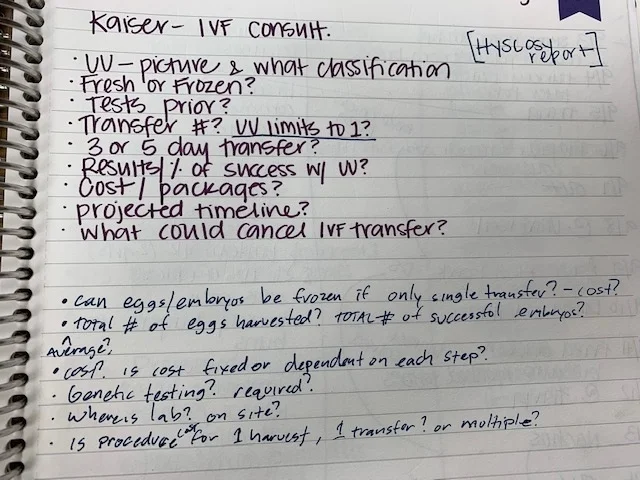 Kaiser - IVF consult.
[Hyscosy
report]
· UU - picture & what classification
· Fresh or Frozen?
· Tests prior?
· Transfer #? UU limits to 1?
· 3 or 5 day transfer?
· Results/% of success w/ UU?
· Cost / packages?
· projected timeline?
· what could cancel IVF transfer?
· can eggs/embryos be frozen if only single transfer? - cost?
· Total # of eggs harvested? TOTAL # of successful embryos?
^
Average?
· cost? is cost fixed or dependent on each step?
· Genetic testing? required?
· where is lab? on site?
· Is procedure cost for 1 harvest, 1 transfer? or multiple?